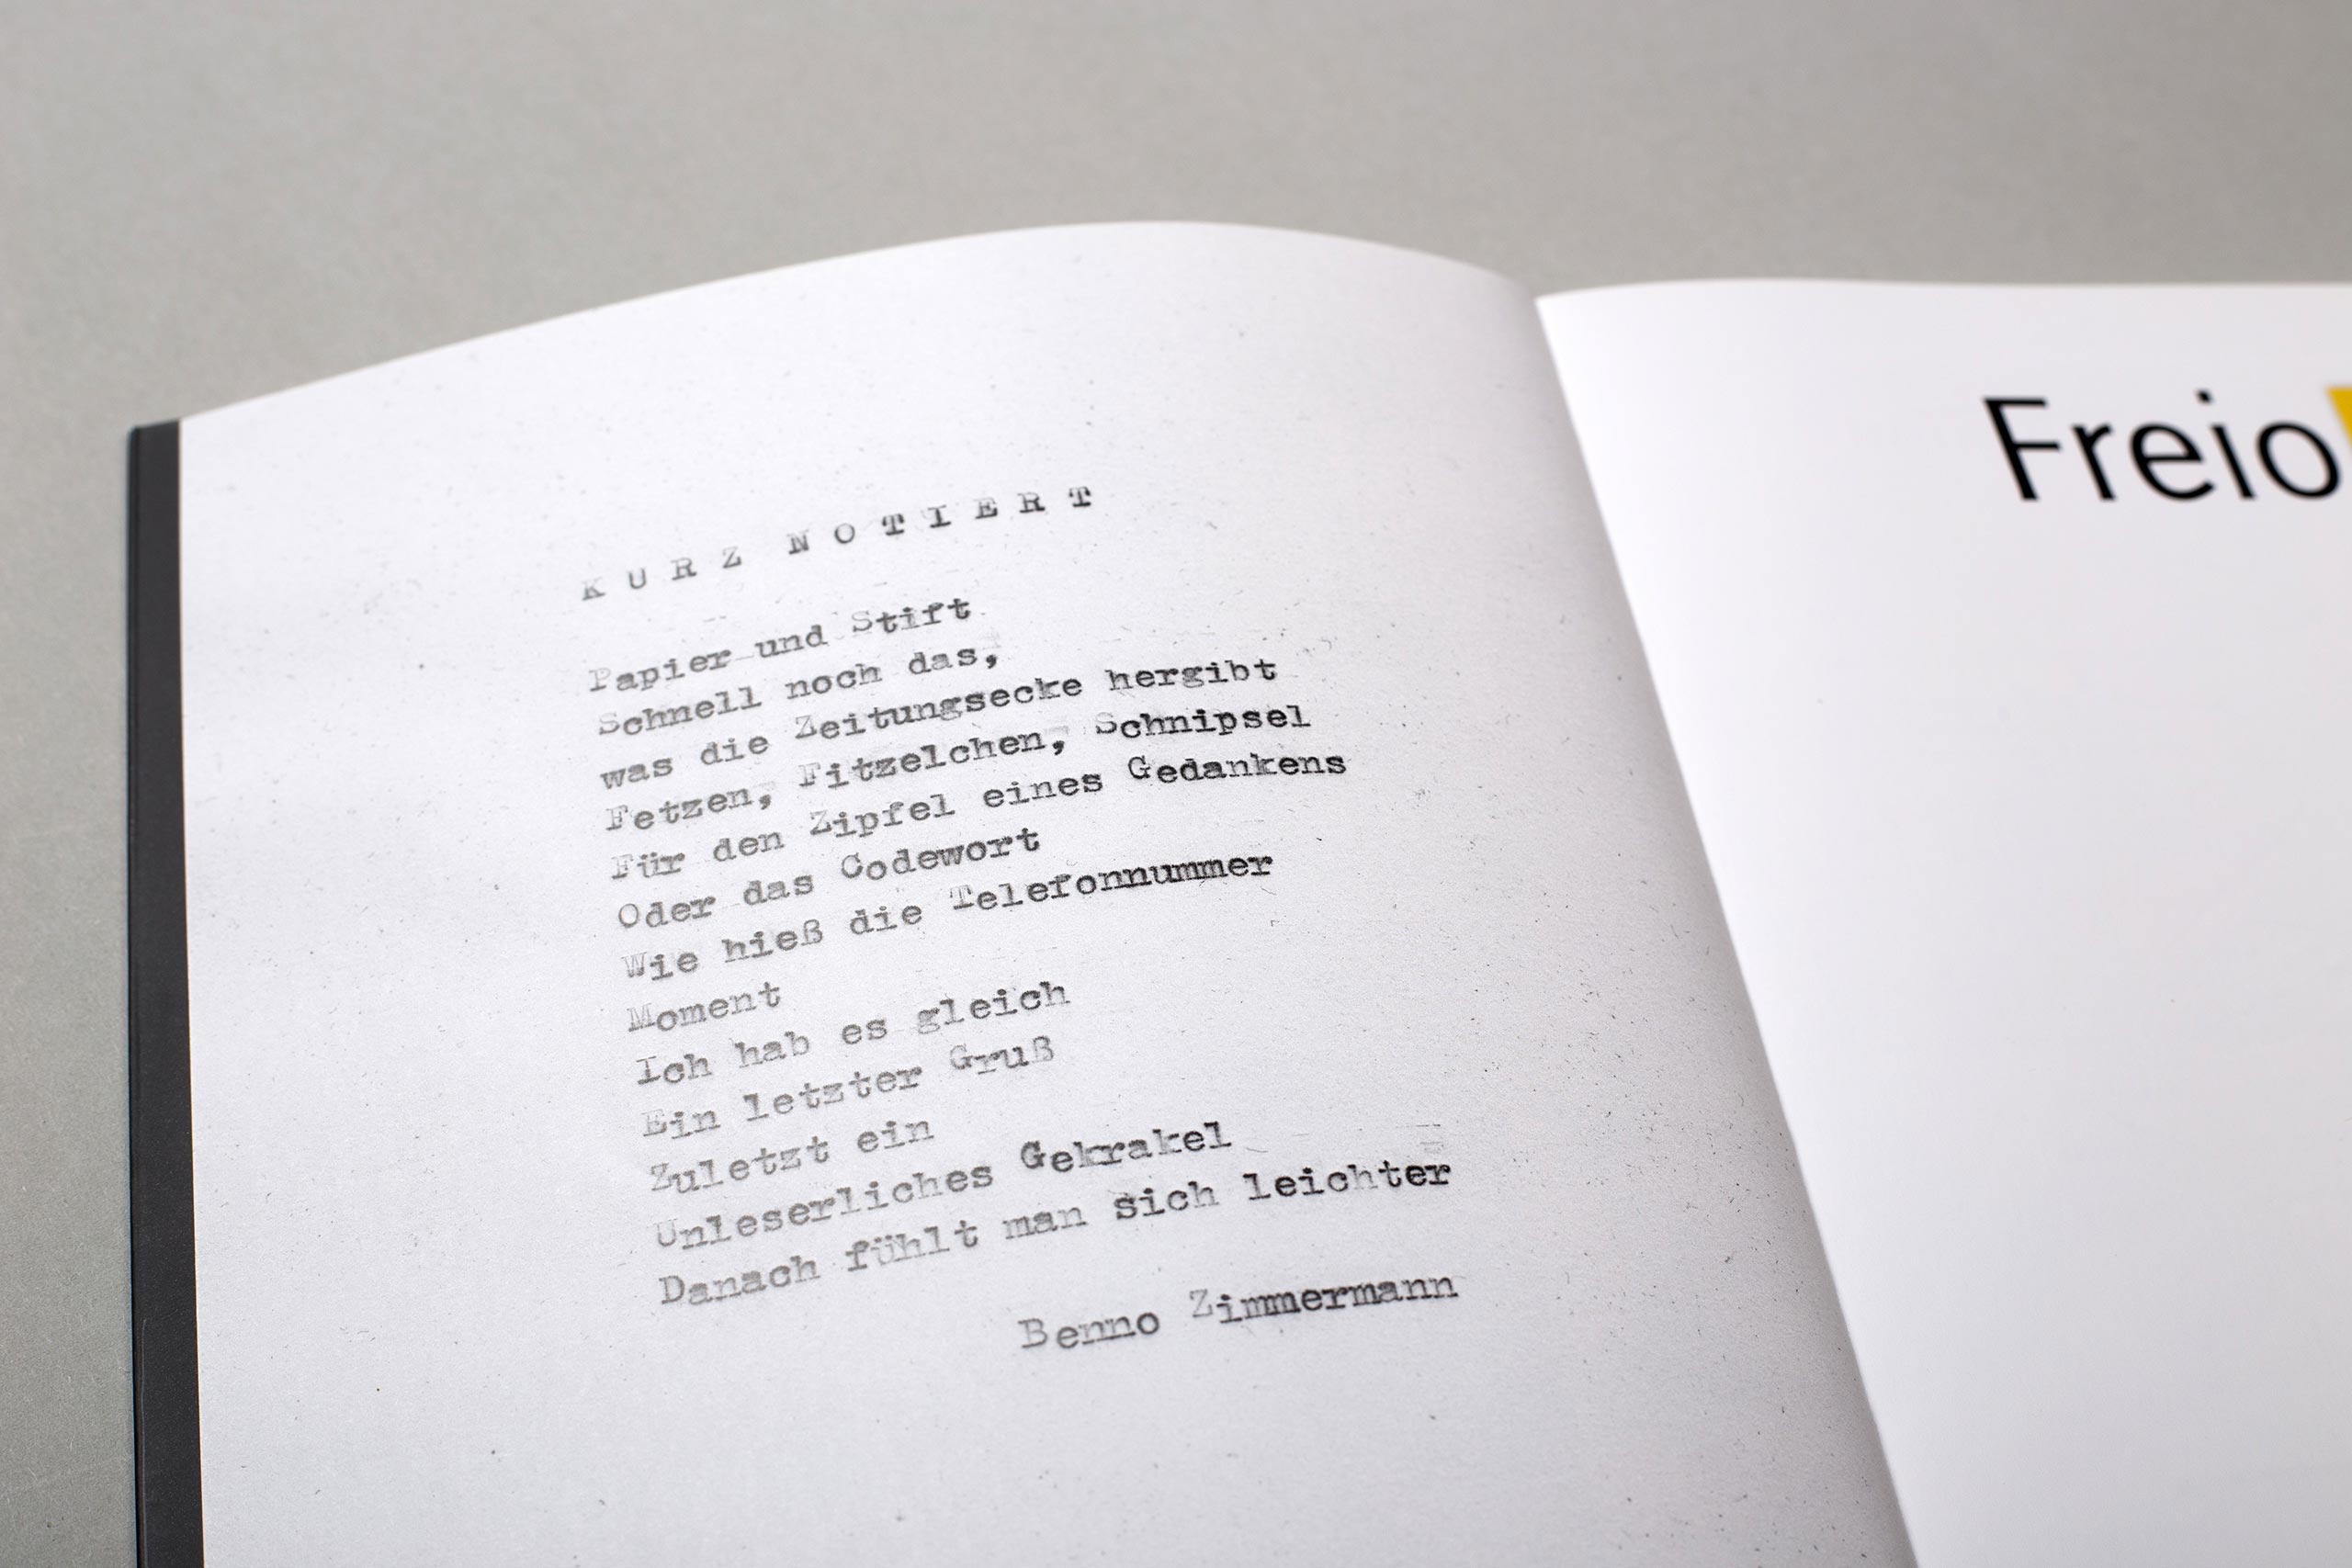 KURZ NOTIERT
Papier und Stift
Schnell noch das,
was die Zeitungsecke hergibt
Fetzen, Fitzelchen, Schnipsel
Für den Zipfel eines Gedankens
Oder das Codewort
Wie hieß die Telefonnummer
Moment
Ich hab es gleich
Ein letzter Gruß
Zuletzt ein
Unleserliches Gekrakel
Danach fühlt man sich leichter
Benno Zimmermann
Freio